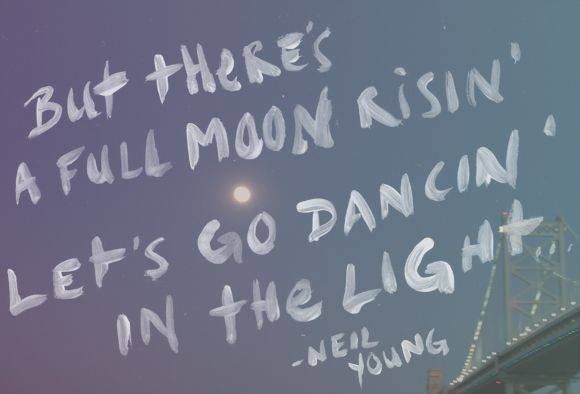 BUT THERE'S
A FULL MOON RISIN'
LET'S GO DANCIN'
IN THE LIGHT...
-NEIL
YOUNG